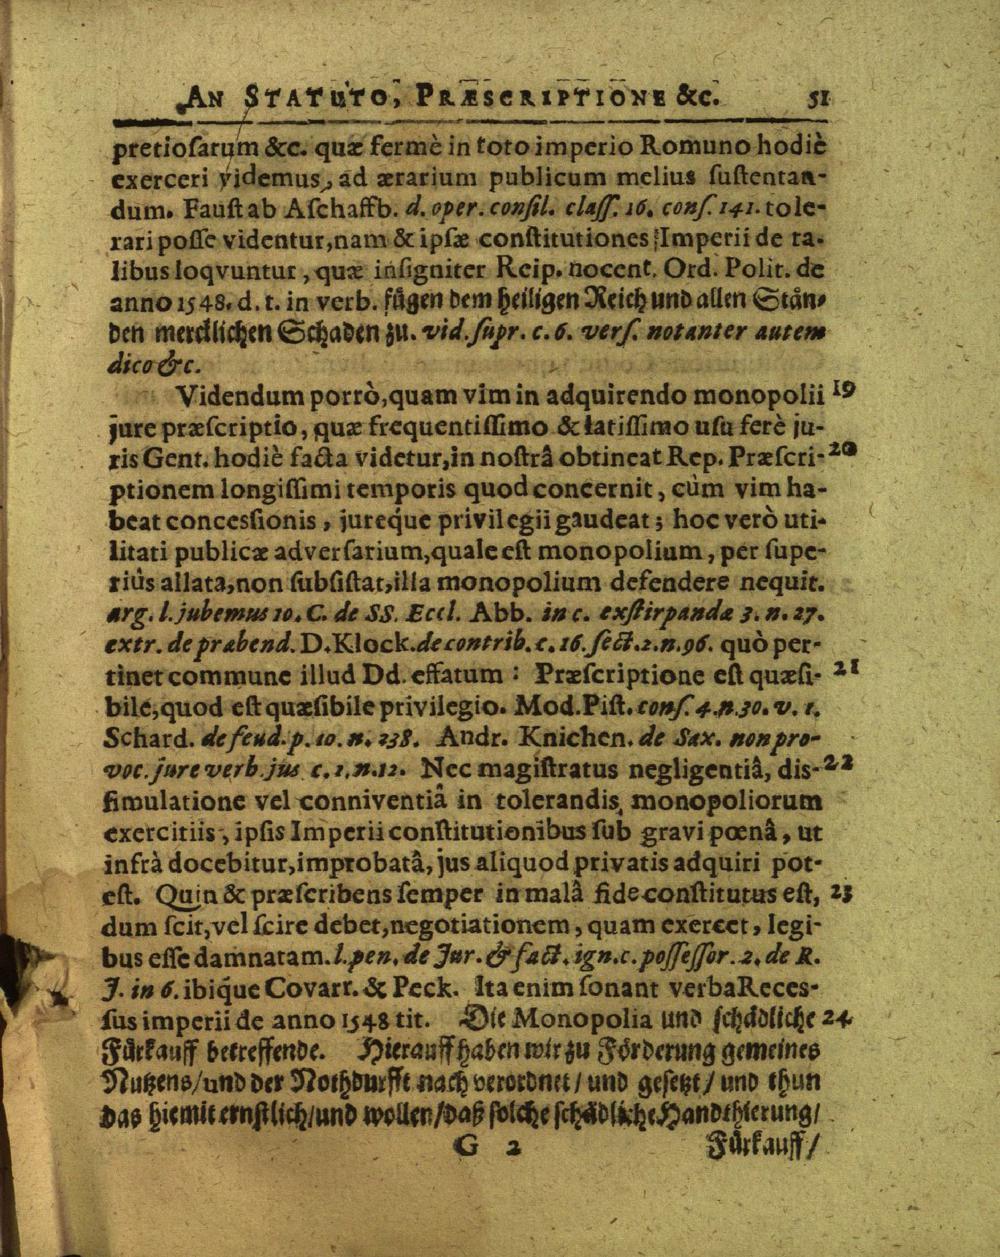 AN STATUTO, PRÆSCRIPTIONE &c. 51
pretioſarum &c. quæ fermè in toto imperio Romuno hodiè
exerceri videmus, ad ærarium publicum melius ſuſtentan-
dum. Fauſt ab Aſchaffb. d. oper. conſil. claſſ. 16. conſ. 141. tole-
rari poſſe videntur, nam & ipſæ conſtitutiones Imperii de ta-
libus loqvuntur, quæ inſigniter Reip. nocent. Ord. Polit. de
anno 1548. d. t. in verb. fůgen dem heiligen Reich und allen Stån-
den mercklichen Schaden zu. vid. ſupr. c. 6. verſ. notanter autem
dico &c.
Videndum porrò, quam vim in adquirendo monopolii 19
jure præſcriptio, quæ frequentiſſimo & latiſſimo uſu ferè ju-
ris Gent. hodiè facta videtur, in noſtrâ obtineat Rep. Præſcri- 20
ptionem longiſſimi temporis quod concernit, cùm vim ha-
beat conceſſionis, jureq́ue privilegii gaudeat; hoc verò uti-
litati publicæ adverſarium, quale eſt monopolium, per ſupe-
riùs allata, non ſubſiſtat, illa monopolium defendere nequit.
arg. l. jubemus 10. C. de SS. Eccl. Abb. in c. exſtirpandæ 3. n. 27.
extr. de præbend. D. Klock. de contrib. c. 16. ſect. 2. n. 96. quò per-
tinet commune illud Dd. effatum: Præſcriptione eſt quæſi- 21
bile, quod eſt quæſibile privilegio. Mod. Piſt. conſ. 4. n. 30. v. 1.
Schard. de feud. p. 10. n. 238. Andr. Knichen. de Sax. non pro-
voc. jure verb. jus c. 1. n. 12. Nec magiſtratus negligentiâ, diſ- 22
ſimulatione vel conniventiâ in tolerandis monopoliorum
exercitiis, ipſis Imperii conſtitutionibus ſub gravi pœnâ, ut
infrà docebitur, improbatâ, jus aliquod privatis adquiri pot-
eſt. Quin & præſcribens ſemper in malâ fide conſtitutus eſt, 23
dum ſcit, vel ſcire debet, negotiationem, quam exercet, legi-
bus eſſe damnatam. l. pen. de Jur. & fact. ign. c. poſſeſſor. 2. de R.
J. in 6. ibiq́ue Covarr. & Peck. Ita enim ſonant verba Receſ-
ſus imperii de anno 1548 tit. Die Monopolia und ſchådliche 24
Fůrkauff betreffende. Hierauff haben wir zu Förderung gemeines
Nutzens / und der Nothdurfft nach verordnet / und geſetzt / und thun
das hiemit ernſtlich / und wollen / daß ſolche ſchådliche Handthierung /
G 2 Fůrkauff /